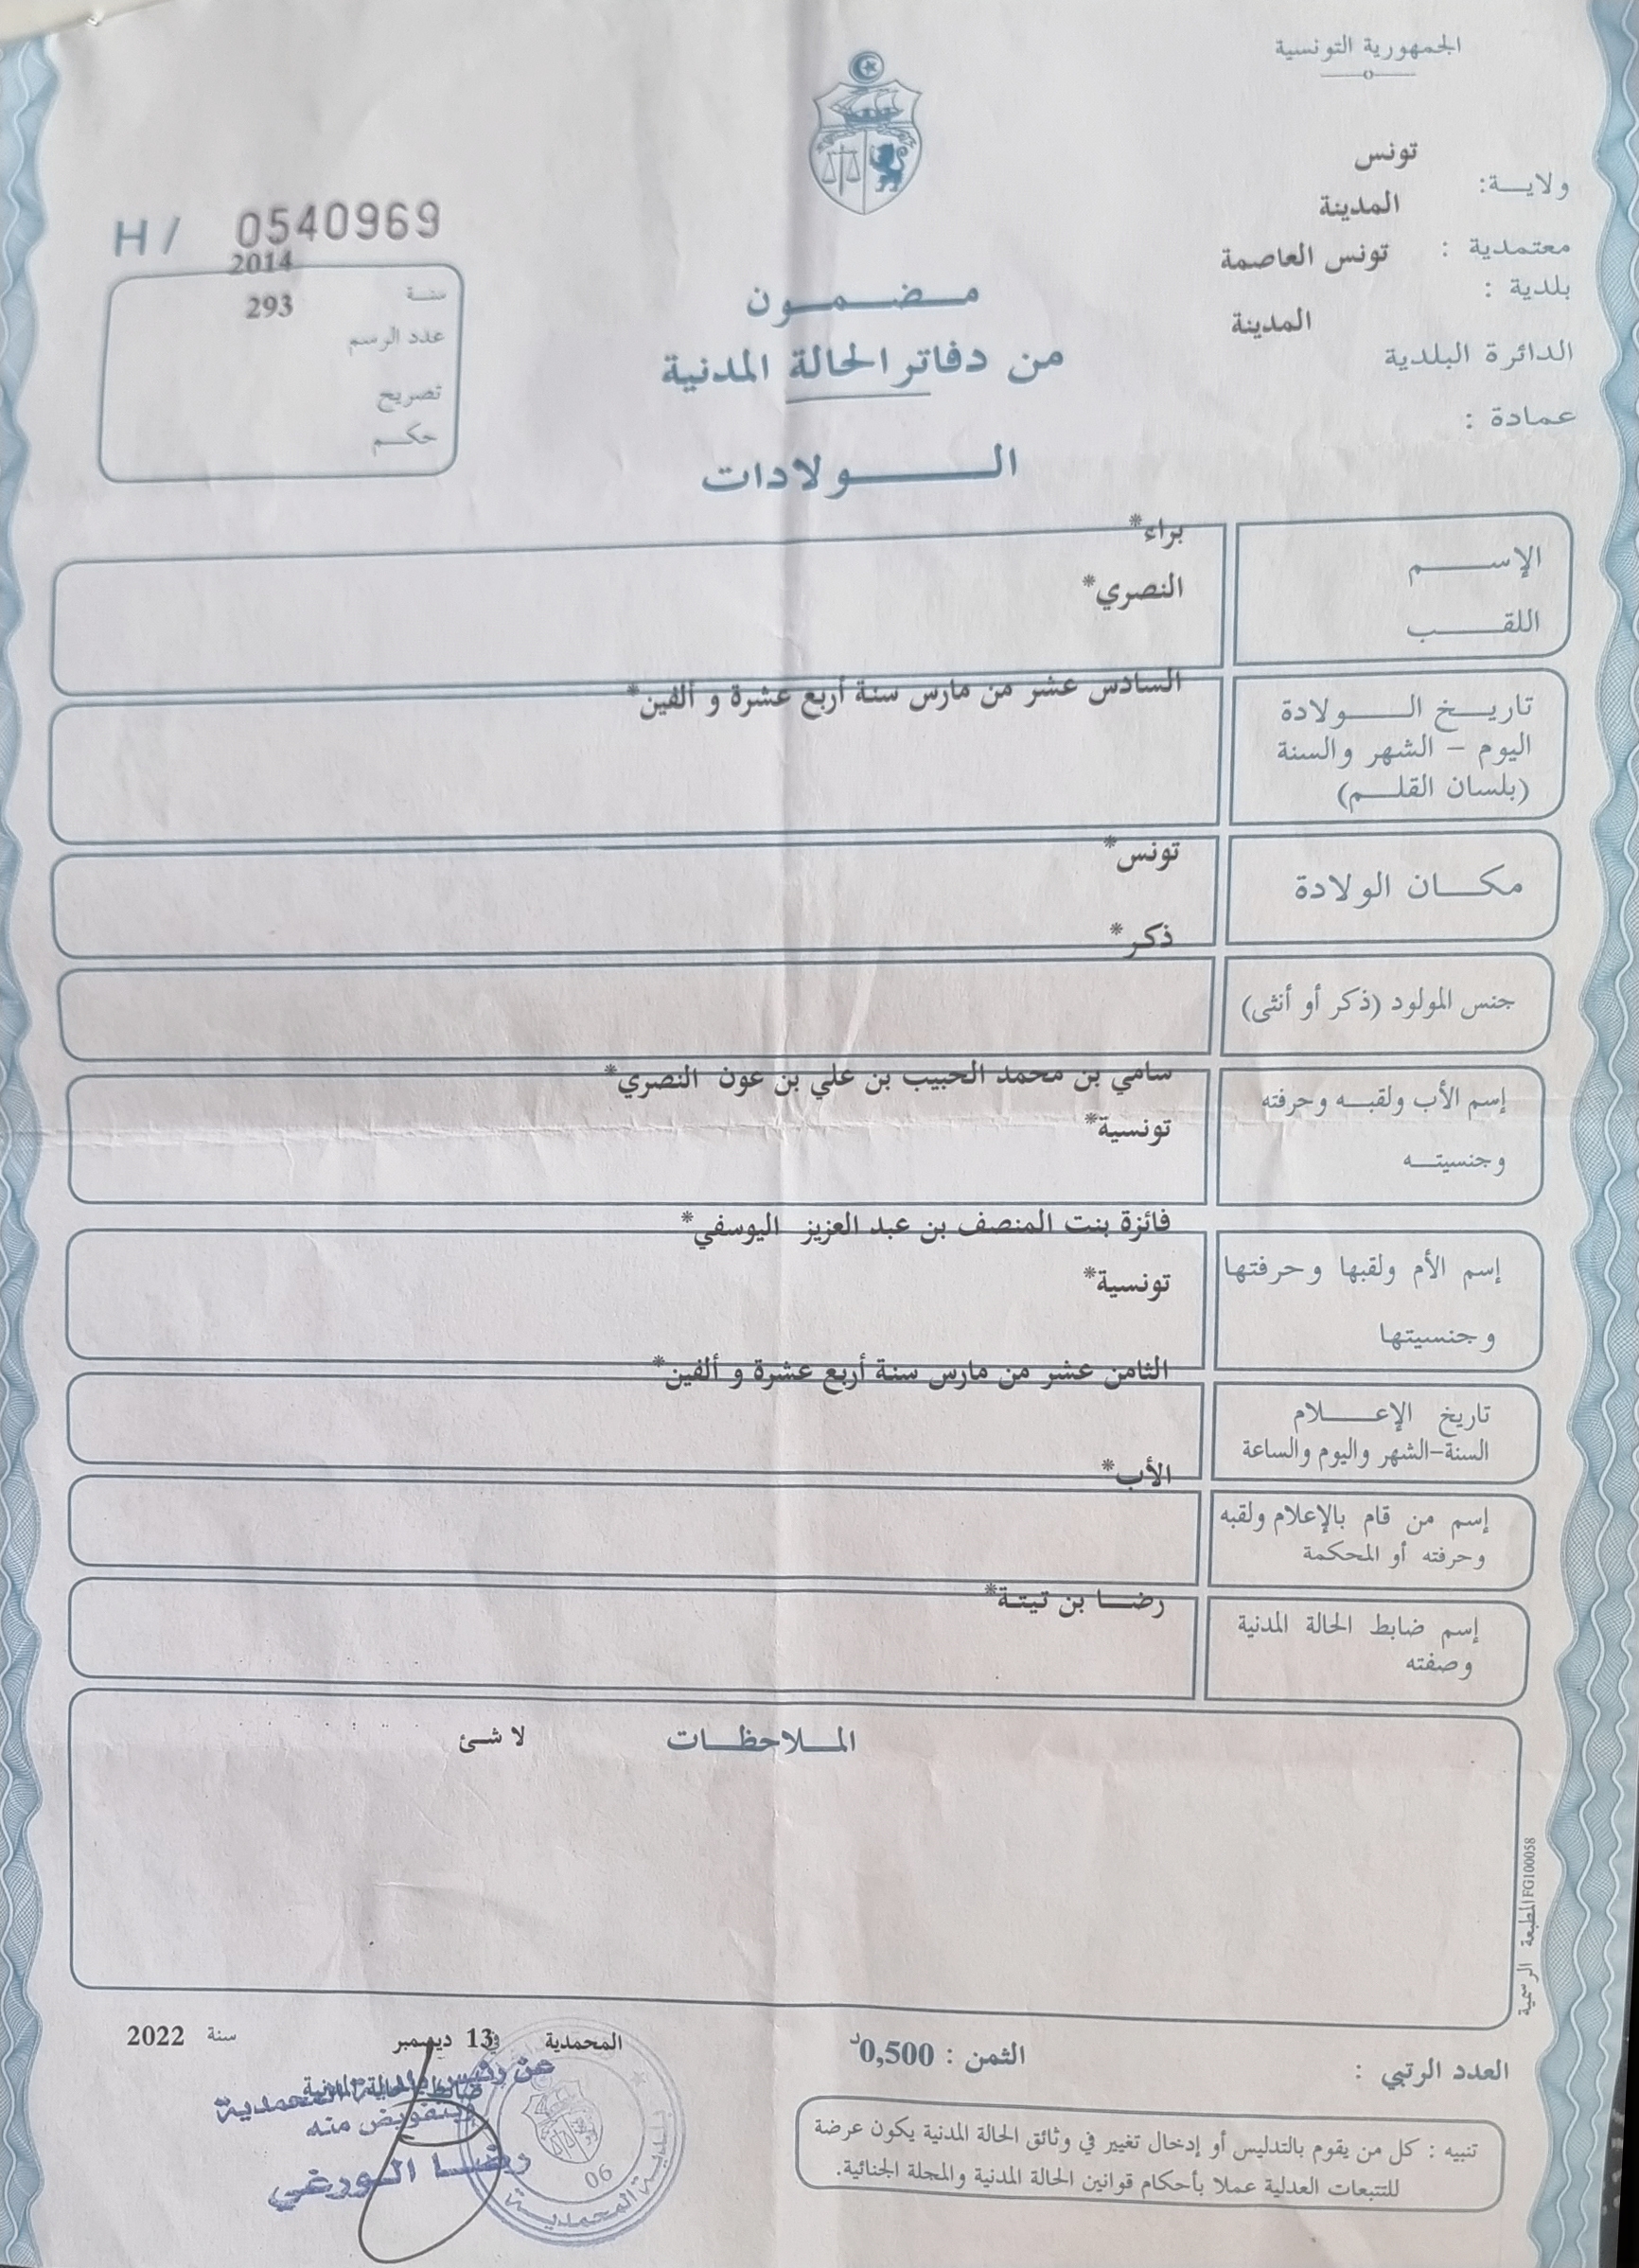 الجمهورية التونسية
ولايـــة: تونس
معتمدية : المدينة
بلدية : تونس العاصمة
الدائرة البلدية المدينة
عمادة :
H/ 0540969
سنة 2014
عدد الرسم 293
تصريح
حكم
مضمون
من دفاتر الحالة المدنية
الولادات
الإسم براء*
اللقب النصري*
تاريخ الولادة
اليوم - الشهر والسنة
(بلسان القلم)
السادس عشر من مارس سنة أربع عشرة و ألفين*
مكان الولادة تونس*
جنس المولود (ذكر أو أنثى) ذكر*
إسم الأب ولقبه وحرفته
وجنسيته
سامي بن محمد الحبيب بن علي بن عون النصري*
تونسية*
إسم الأم ولقبها وحرفتها
وجنسيتها
فائزة بنت المنصف بن عبد العزيز اليوسفي*
تونسية*
تاريخ الإعلام
السنة-الشهر واليوم والساعة
الثامن عشر من مارس سنة أربع عشرة و ألفين*
إسم من قام بالإعلام ولقبه
وحرفته أو المحكمة
الأب*
إسم ضابط الحالة المدنية
وصفته
رضا بن تيتة*
الملاحظات لا شئ
المطبعة الرسمية FG100058
العدد الرتبي :
الثمن : 0,500د
المحمدية في 13 ديسمبر سنة 2022
عن رئيس بلدية المحمدية
ضابط الحالة المدنية
وبتفويض منه
رضا الورغي
بلدية المحمدية
06
تنبيه : كل من يقوم بالتدليس أو إدخال تغيير في وثائق الحالة المدنية يكون عرضة
للتتبعات العدلية عملا بأحكام قوانين الحالة المدنية والمجلة الجنائية.